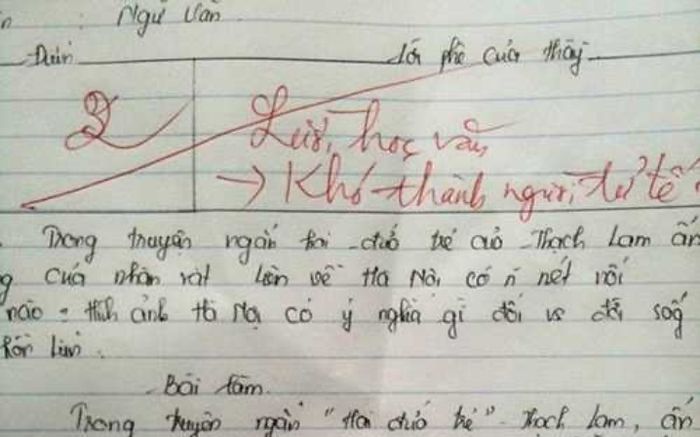 : Ngữ Văn
Điểm Lời phê của thầy
2 Lười học văn
→ Khó thành người tử tế
Trong truyện ngắn hai đứa trẻ của Thạch Lam ấn
g của nhân vật Liên về Hà Nội có n nét nổi
nào = Hình ảnh Hà Nội có ý nghĩa gì đối vs đời sống
hồn Liên.
Bài làm.
Trong truyện ngắn "Hai đứa trẻ" - Thạch Lam, ấn